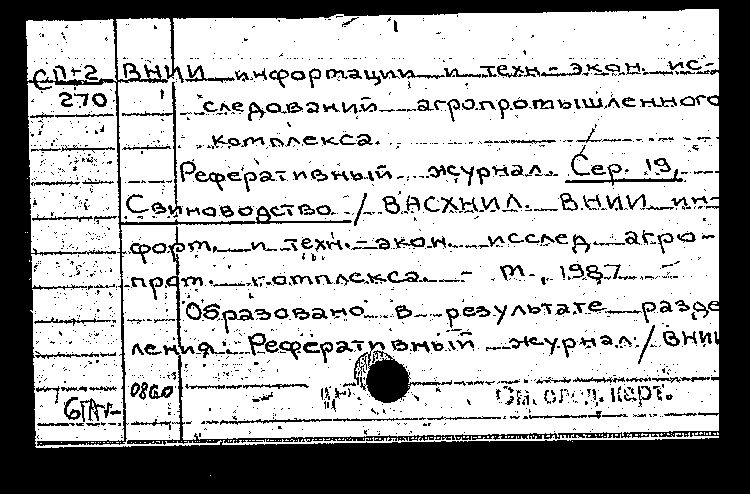 СП-2 ВНИИ информации и техн.-экон. ис-
270 следований агропромышленного
комплекса.
Реферативный журнал. Сер. 19,
Свиноводство / ВАСХНИЛ. ВНИИ ин-
форм. и техн.-экон. исслед. агро-
пром. комплекса. - М., 1987 -
Образовано в результате разде
ления: Реферативный журнал. / ВНИИ
0860
См. след. карт.